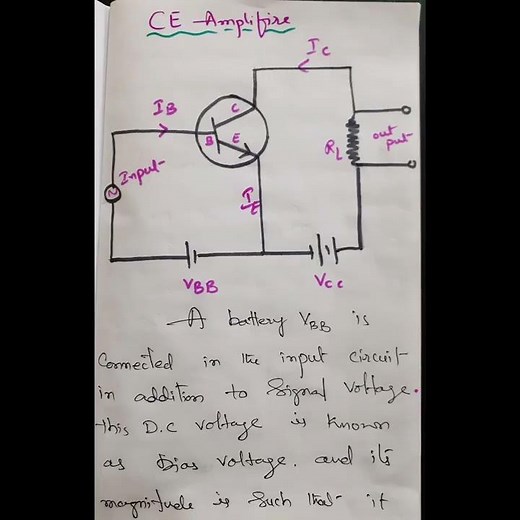 CE Amplifire
IC
IB
C
B
E
Input
RL
out
put
IE
VBB
VCC
A battery VBB is
Connected in the input circuit
in addition to Signal Voltage.
this D.C voltage is known
as Bias voltage. and its
magnitude is Such that it